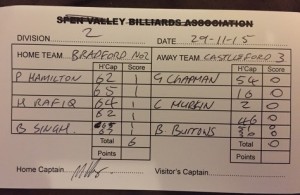 SPEN VALLEY BILLIARDS ASSOCIATION
DIVISION 2 DATE 29-11-15
HOME TEAM BRADFORD No2 AWAY TEAM CASTLEFORD 3
H'Cap Score H'Cap Score
P HAMILTON 62 1 G CHAPMAN 54 0
65 1 16 0
H RAFIQ 64 1 C MURFIN 2 0
62 1 46 0
B SINGH. 1 B BUTTONS 0
67 1 0
Total 6 Total 0
Points Points
Home Captain Visitor's Captain